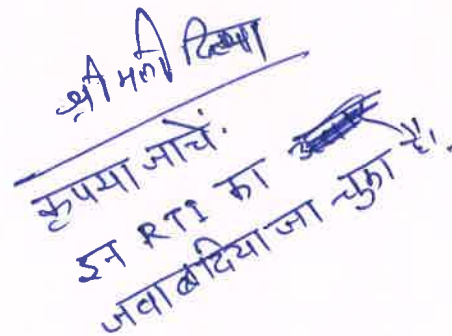 श्रीमती दिव्या
कृपया जाचें.
इन RTI का है।
जवाब दिया जा चुका